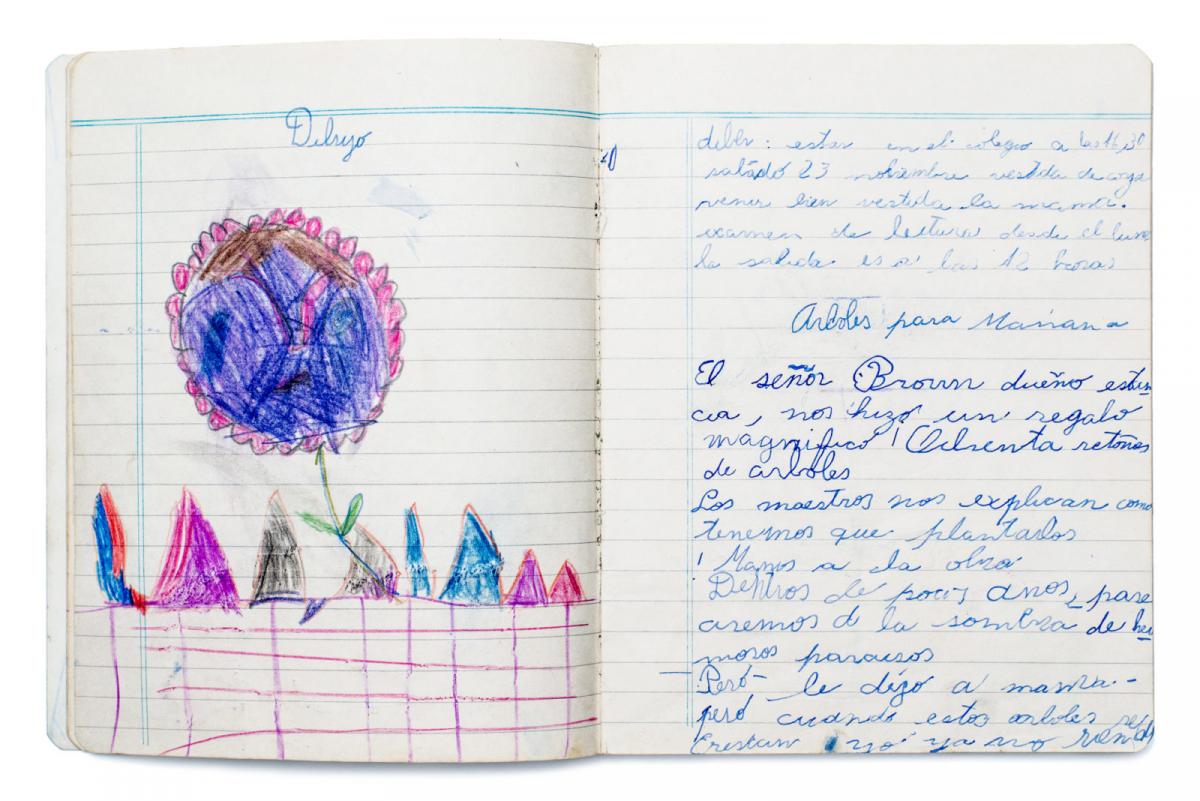 Dibujo
deber: estar en el colegio a las 16,30
sabádó 23 noviembre vestida de coya
venir bien vestida la mamá.
examen de lectura desde el lune
la salida es a las 12 horas
Arboles para Mañana
El señor Brown dueño estan
cia, nos hizó un regalo
magnifico! Ochenta retoños
de arboles
Los maestros nos explican como
tenemos que plantarlos
! Manos a la obra
Dentros de pocos anos, pase
aremos a la sombra de her
mosos paraisos
Peró- le digo a mama-
peró cuando estos arboles
yó ya no